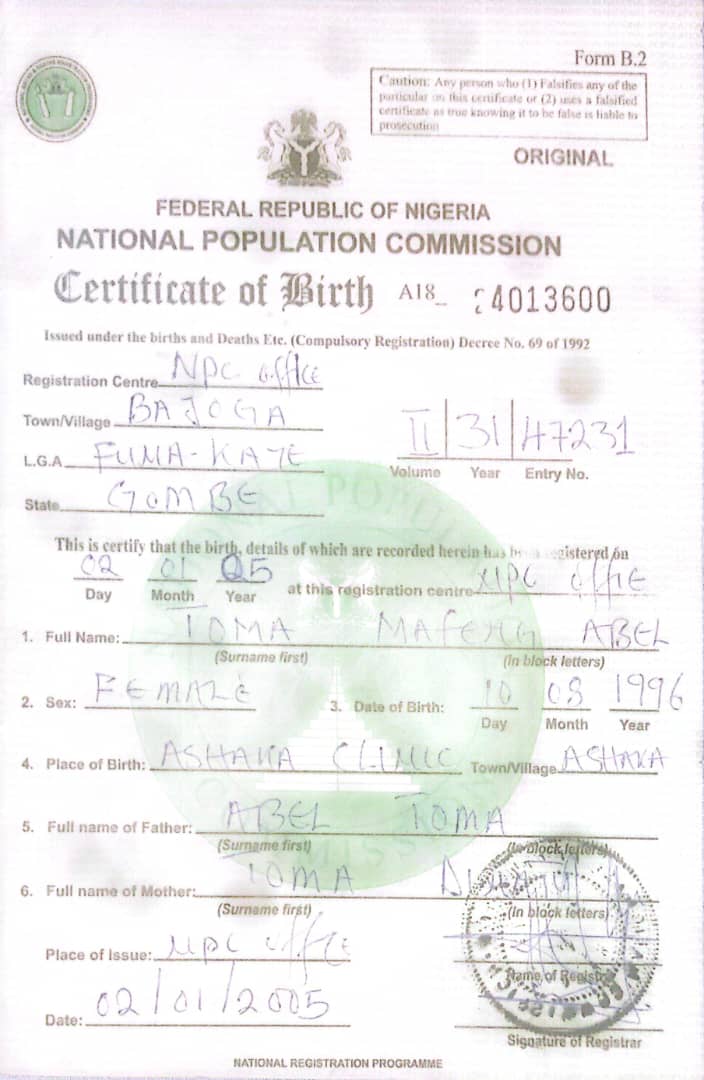 Form B.2
Caution: Any person who (1) Falsifies any of the
particular on this certificate or (2) uses a falsified
certificate as true knowing it to be false is liable to
prosecution
ORIGINAL
FEDERAL REPUBLIC OF NIGERIA
NATIONAL POPULATION COMMISSION
Certificate of Birth A18_ 4013600
Issued under the births and Deaths Etc. (Compulsory Registration) Decree No. 69 of 1992
Registration Centre NPC office
Town/Village BAJOGA
II 31 47231
L.G.A FUNA-KAYE
Volume Year Entry No.
State GOMBE
This is certify that the birth, details of which are recorded herein has been registered on
02 01 05 at this registration centre NPC office
Day Month Year
1. Full Name: TOMA MAFENG ABEL
(Surname first) (In block letters)
2. Sex: FEMALE 3. Date of Birth: 10 08 1996
Day Month Year
4. Place of Birth: ASHAKA CLINIC Town/Village ASHAKA
5. Full name of Father: ABEL TOMA
(Surname first) (In block letters)
6. Full name of Mother: TOMA
(Surname first) (In block letters)
Place of Issue: NPC office
Name of Registrar
Date: 02/01/2005
Signature of Registrar
NATIONAL REGISTRATION PROGRAMME